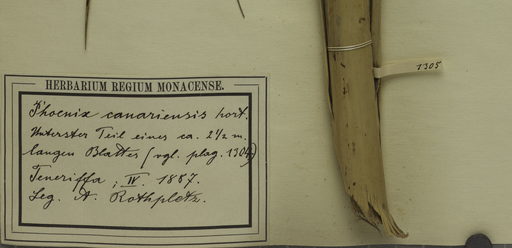 1305
HERBARIUM REGIUM MONACENSE.
Phoenix canariensis hort.
Unterster Teil eines ca. 2 1/2 m.
langen Blattes (vgl. plag. 1304)
Teneriffa, IV. 1887.
Leg. A. Rothpletz.